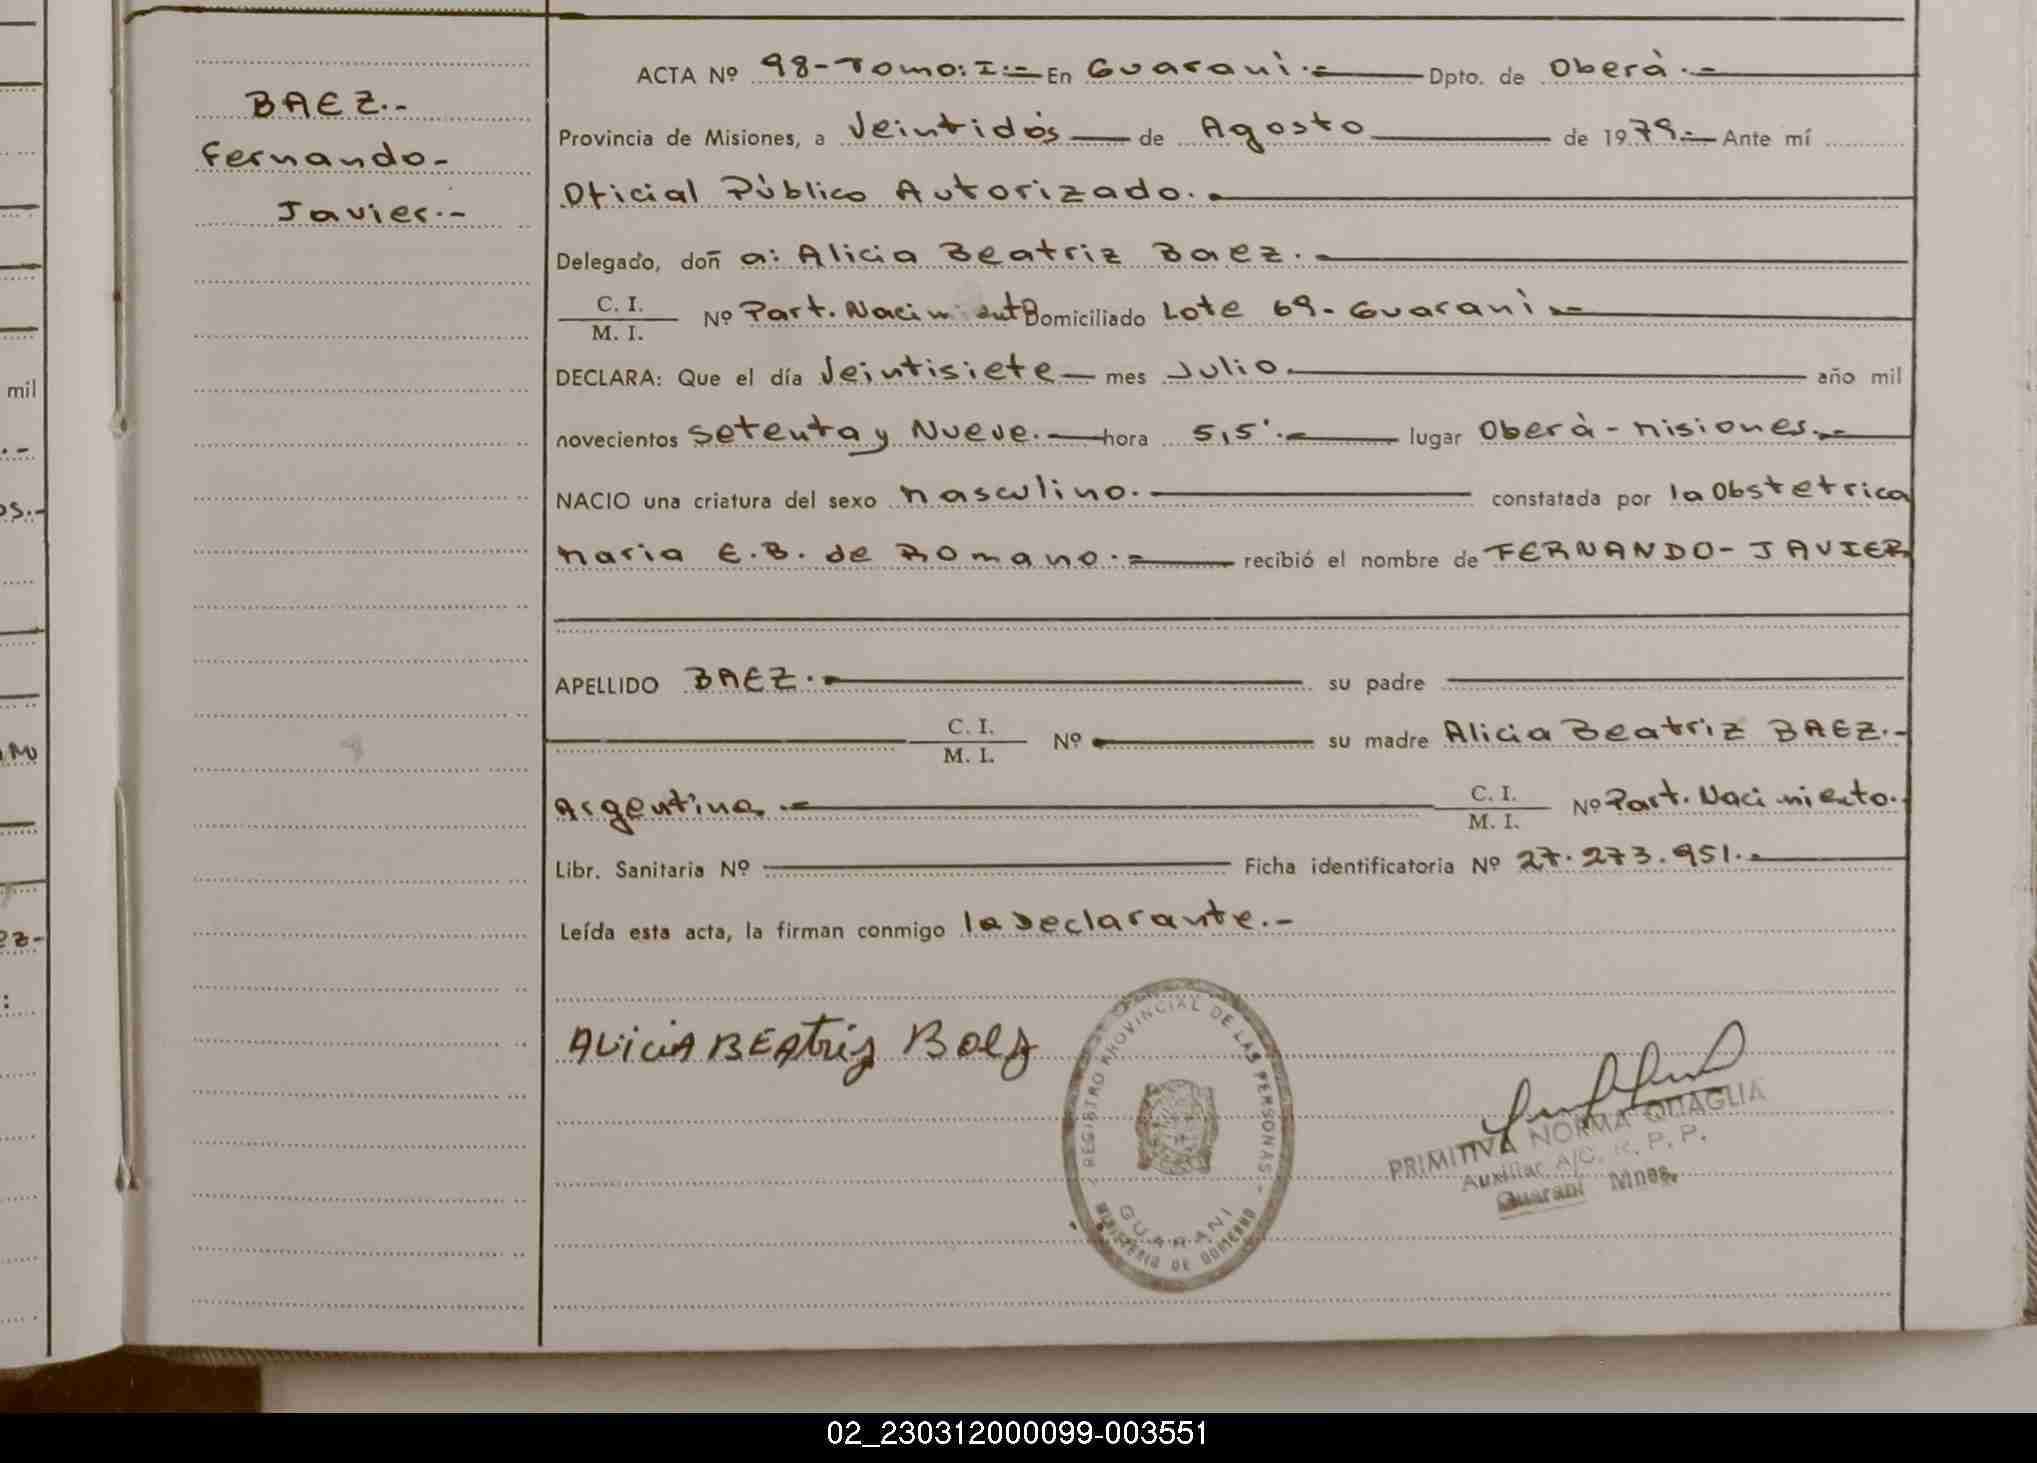 BAEZ.-
Fernando-
Javier.-
ACTA Nº 98-Tomo: I.- En Guaraní.- Dpto. de Oberà.-
Provincia de Misiones, a Veintidós de Agosto de 1979.- Ante mí
Oficial Público Autorizado.-
Delegado, doñ a: Alicia Beatriz Baez.-
C. I.
M. I.
Nº Part. Nacimiento Domiciliado Lote 69- Guaranì.-
DECLARA: Que el día Veintisiete mes Julio. año mil
novecientos Setenta y Nueve.- hora 5,5'.- lugar Oberà - Misiones.-
NACIO una criatura del sexo Masculino.- constatada por la Obstetrica
Maria E.B. de Romano.- recibió el nombre de FERNANDO- JAVIER
APELLIDO BAEZ.- su padre
C. I.
M. I.
Nº su madre Alicia Beatriz BAEZ.-
Argentina.-
C. I.
M. I.
Nº Part. Nacimiento.-
Libr. Sanitaria Nº Ficha identificatoria Nº 27.273.951.-
Leída esta acta, la firman conmigo la Declarante.-
ALiciA BEAtriz Baez
REGISTRO PROVINCIAL DE LAS PERSONAS
GUARANI
MINISTERIO DE GOBIERNO
PRIMITIVA NORMA QUAGLIA
Auxiliar A/C. R. P. P.
Guaraní Mnes.
mil
.-
os.-
ez-
:
02_230312000099-003551